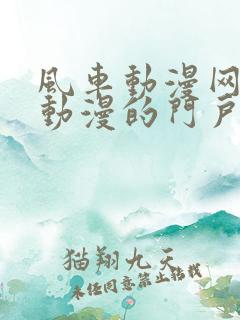 風車動漫网
動漫的門戶
猫翔九天
未经同意禁止转载